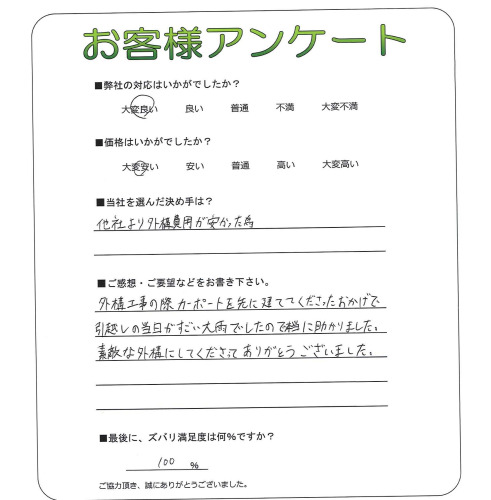 お客様アンケート
■弊社の対応はいかがでしたか?
大変良い 良い 普通 不満 大変不満
■価格はいかがでしたか?
大変安い 安い 普通 高い 大変高い
■当社を選んだ決め手は?
他社より外構費用が安かった為
■ご感想・ご要望などをお書き下さい。
外構工事の際カーポートを先に建ててくださったおかげで
引越しの当日がすごい大雨でしたので本当に助かりました。
素敵な外構にしてくださってありがとうございました。
■最後に、ズバリ満足度は何%ですか?
100 %
ご協力頂き、誠にありがとうございました。